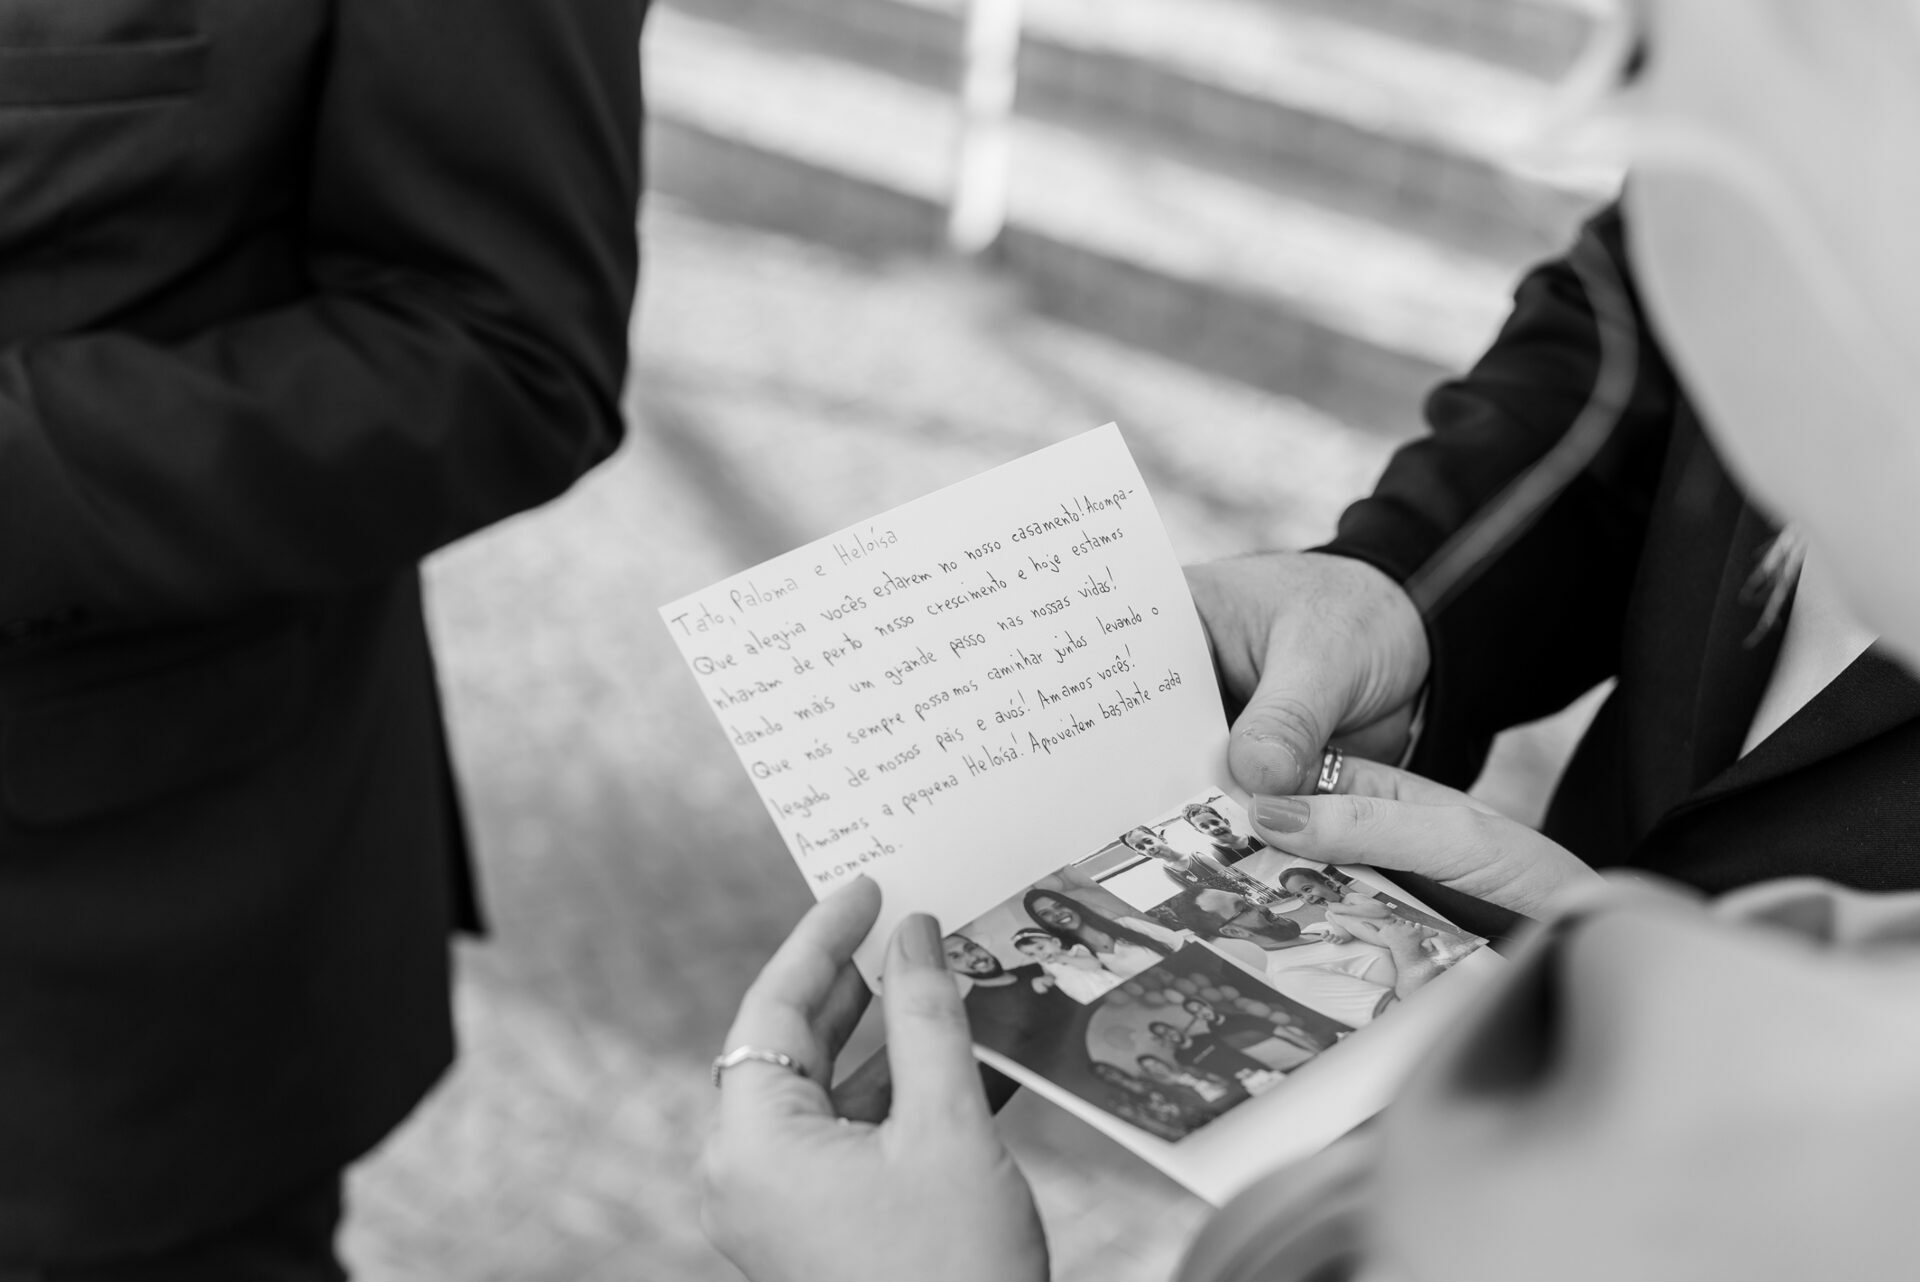 Tato, Paloma e Heloísa
Que alegria vocês estarem no nosso casamento! Acompa-
nharam de perto nosso crescimento e hoje estamos
dando mais um grande passo nas nossas vidas!
Que nós sempre possamos caminhar juntos levando o
legado de nossos pais e avós! Amamos vocês!
Amamos a pequena Heloísa! Aproveitem bastante cada
momento.